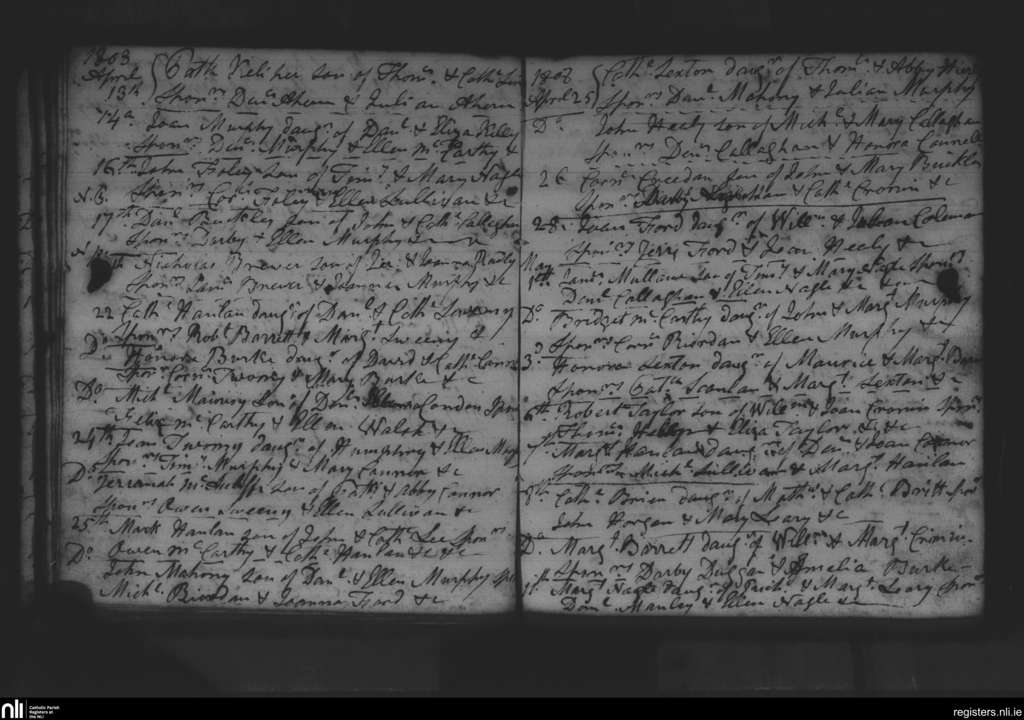 1803
April 13th Path Keliher son of Thoms. & Cathe.
Sponrs. Danl. Ahern & Julian Ahern
14th Joan Murphy daugr. of Danl. & Eliza Kelly
Sponrs. Denis Murphy & Ellen McCarthy &
16th John Foley son of Timy. & Mary Nagle
N.B. Sponrs. Cors. Foley & Ellen Sullivan &c
17th Danl. Buckley son of John & Cathe. Callaghan
Sponrs. Darby & Ellen Murphy
Nicholas Brewer son of & Joanna
Sponrs. Brewer & Joanna Murphy &c
22 Cathe. Hanlan daugr. of Danl. & Cathe.
Sponrs. Robt. Barrett & Margt. Sweeny &
Do. Honora Burke daugr. of David & Cathe. Connor
Sponrs. Corns. Twomy & Mary Burke & c
Do. Michl. son of Condon Spons.
McCarthy & Ellen Walsh &c
24th Joan Twomy daugr. of Humphry & Ellen Murphy
Sponrs. Timy. Murphy & Mary Connor &c
Do. Jerimiah McAuliffe son of Patk. & Abby Connor
Sponrs. Owen Sweeny & Ellen Sullivan &c
25th Mark Hanlan son of John & Cathe. Lee Sponrs.
Owen McCarthy & Cathe. Hanlan &c &c
Do. John Mahony son of Danl. & Ellen Murphy Spon
Michl. Riordan & Joanna Ford &c
1803 Cathe. Sexton daugr. of Thoms. & Abby
April 25 Sponrs. Danl. Mahony & Julian Murphy
Do. John Heely son of Michl. & Mary Callaghan
Sponrs. Denis Callaghan & Honora Connell
26 Corns. Creedan son of John & Mary Buckley
Sponrs. & Cathe. Cronin &c
28 Joan Ford daugr. of Willm. & Julian Coleman
Sponrs. Jerry Ford & Joan Heely &
May 1st Mullane son of Timy. & Mary Sponrs.
Danl. Callaghan & Ellen Nagle &c
Do. Bridget McCarthy daugr. of John & Margt. Murphy
Sponrs. Corns. Riordan & Ellen Murphy &c
3d Honora Sexton daugr. of Maurice & Margt.
Sponrs. Patk. Scanlan & Margt. Sexton &
6th Robert Taylor son of Willm. & Joan Cronin Sponrs.
Thoms. & Eliza Taylor &c
7th Margt. Hanlan daugr. of Danl. & Joan Connor
Sponrs. Michl. Sullivan & Margt. Hanlan
8th Cathe. Brien daugr. of Mathw. & Cathe. Spons.
John Horgan & Mary Leary &c
Do. Margt. Barrett daugr. of Willm. & Margt. Cronin
Sponrs. Darby Duggan & Amelia Burke
Margt. Nagle daugr. of & Margt. Leary Sponrs.
Manley & Ellen Nagle &c
nli Catholic Parish Registers at the NLI
registers.nli.ie